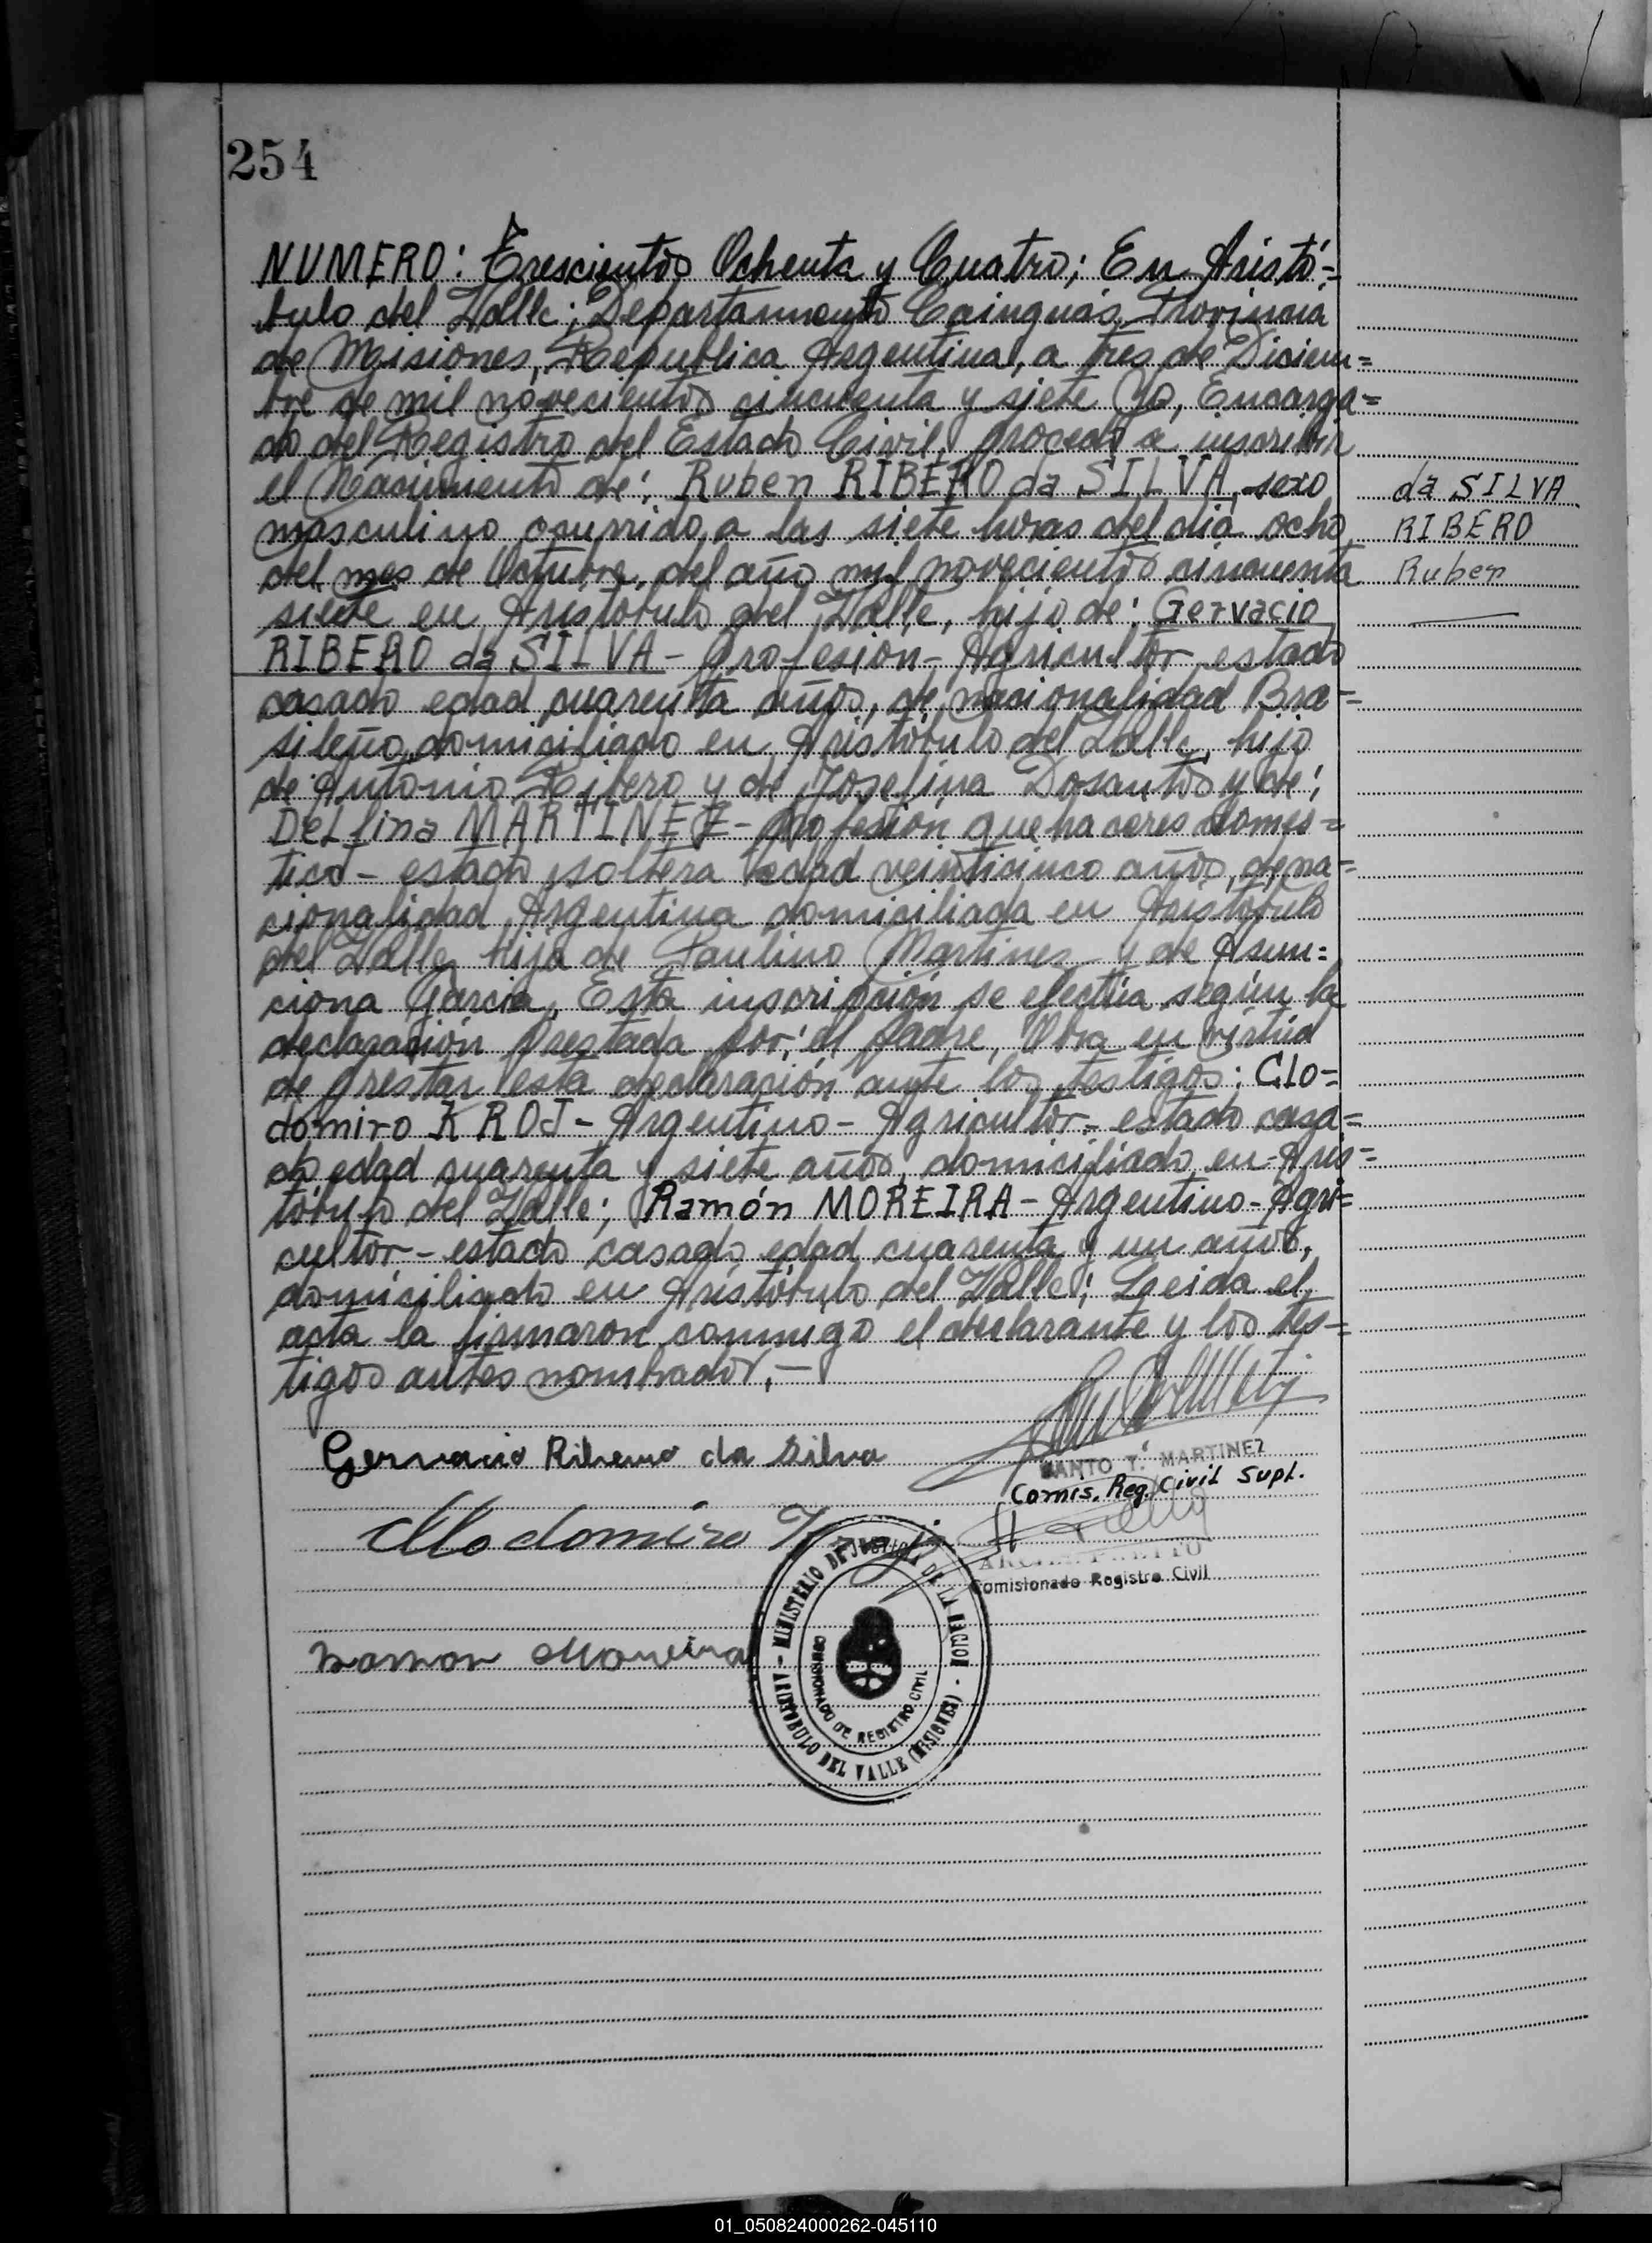 254
NUMERO: Trescientos Ochenta y Cuatro; En Aristó=
bulo del Valle; Departamento Cainguás, Provincia
de Misiones, Republica Argentina, a tres de Diciem=
bre de mil novecientos cincuenta y siete Yo, Encarga=
do del Registro del Estado Civil, procedo a inscribir
el Nacimiento de; Ruben RIBERO da SILVA, sexo
da SILVA
masculino ocurrido a las siete horas del dia ocho
RIBERO
del mes de Octubre, del año mil novecientos cincuenta
Ruben
siete en Aristóbulo del Valle, hijo de; Gervacio
RIBERO da SILVA - profesion - Agricultor estado
casado edad cuarenta años, de nacionalidad Bra=
sileño, domiciliado en Aristóbulo del Valle, hijo
de Antonio Ribero y de Joselina Dosantos y de;
DeLfina MARTINEZ - profesión quehaceres domes=
tico - estado soltera edad veinticinco años, de na=
cionalidad Argentina domiciliada en Aristobulo
del Valle, hija de Paulino Martines y de Asun=
ciona Garcia, Esta inscripción se efectúa según la
declaración prestada por; el padre, Obra en virtud
de prestar esta declaración ante los testigos; Clo=
domiro KROJ - Argentino - Agricultor - estado casa=
do edad cuarenta y siete años, domiciliado en Aris=
tóbulo del Valle; Ramón MOREIRA - Argentino - Agri=
cultor - estado casado edad cuarenta y un años,
domiciliado en Aristóbulo del Valle; Leida el
acta la firmaron conmigo el declarante y los tes=
tigos antes nombrados, -
Gervacio Ribeiro da Silva
SANTO T. MARTINEZ
Comis. Reg. Civil Supl.
Clodomiro
Comisionado Registro Civil
MINISTERIO DE JUSTICIA DE LA NACION - ARISTOBULO DEL VALLE (MISIONES) -
COMISIONADO DE REGISTRO CIVIL
Ramon Moreira
01_050824000262-045110